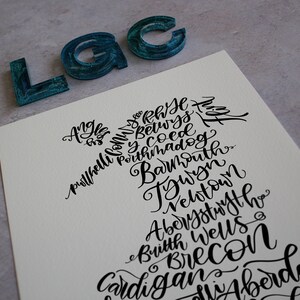 LGC
Rhyl
Anglesey
Conwy
Betws
y coed
Pwllheli
Porthmadog
Barmouth
Tywyn
Newtown
Aberystwyth
Builth wells
Brecon
Cardigan
Aberd